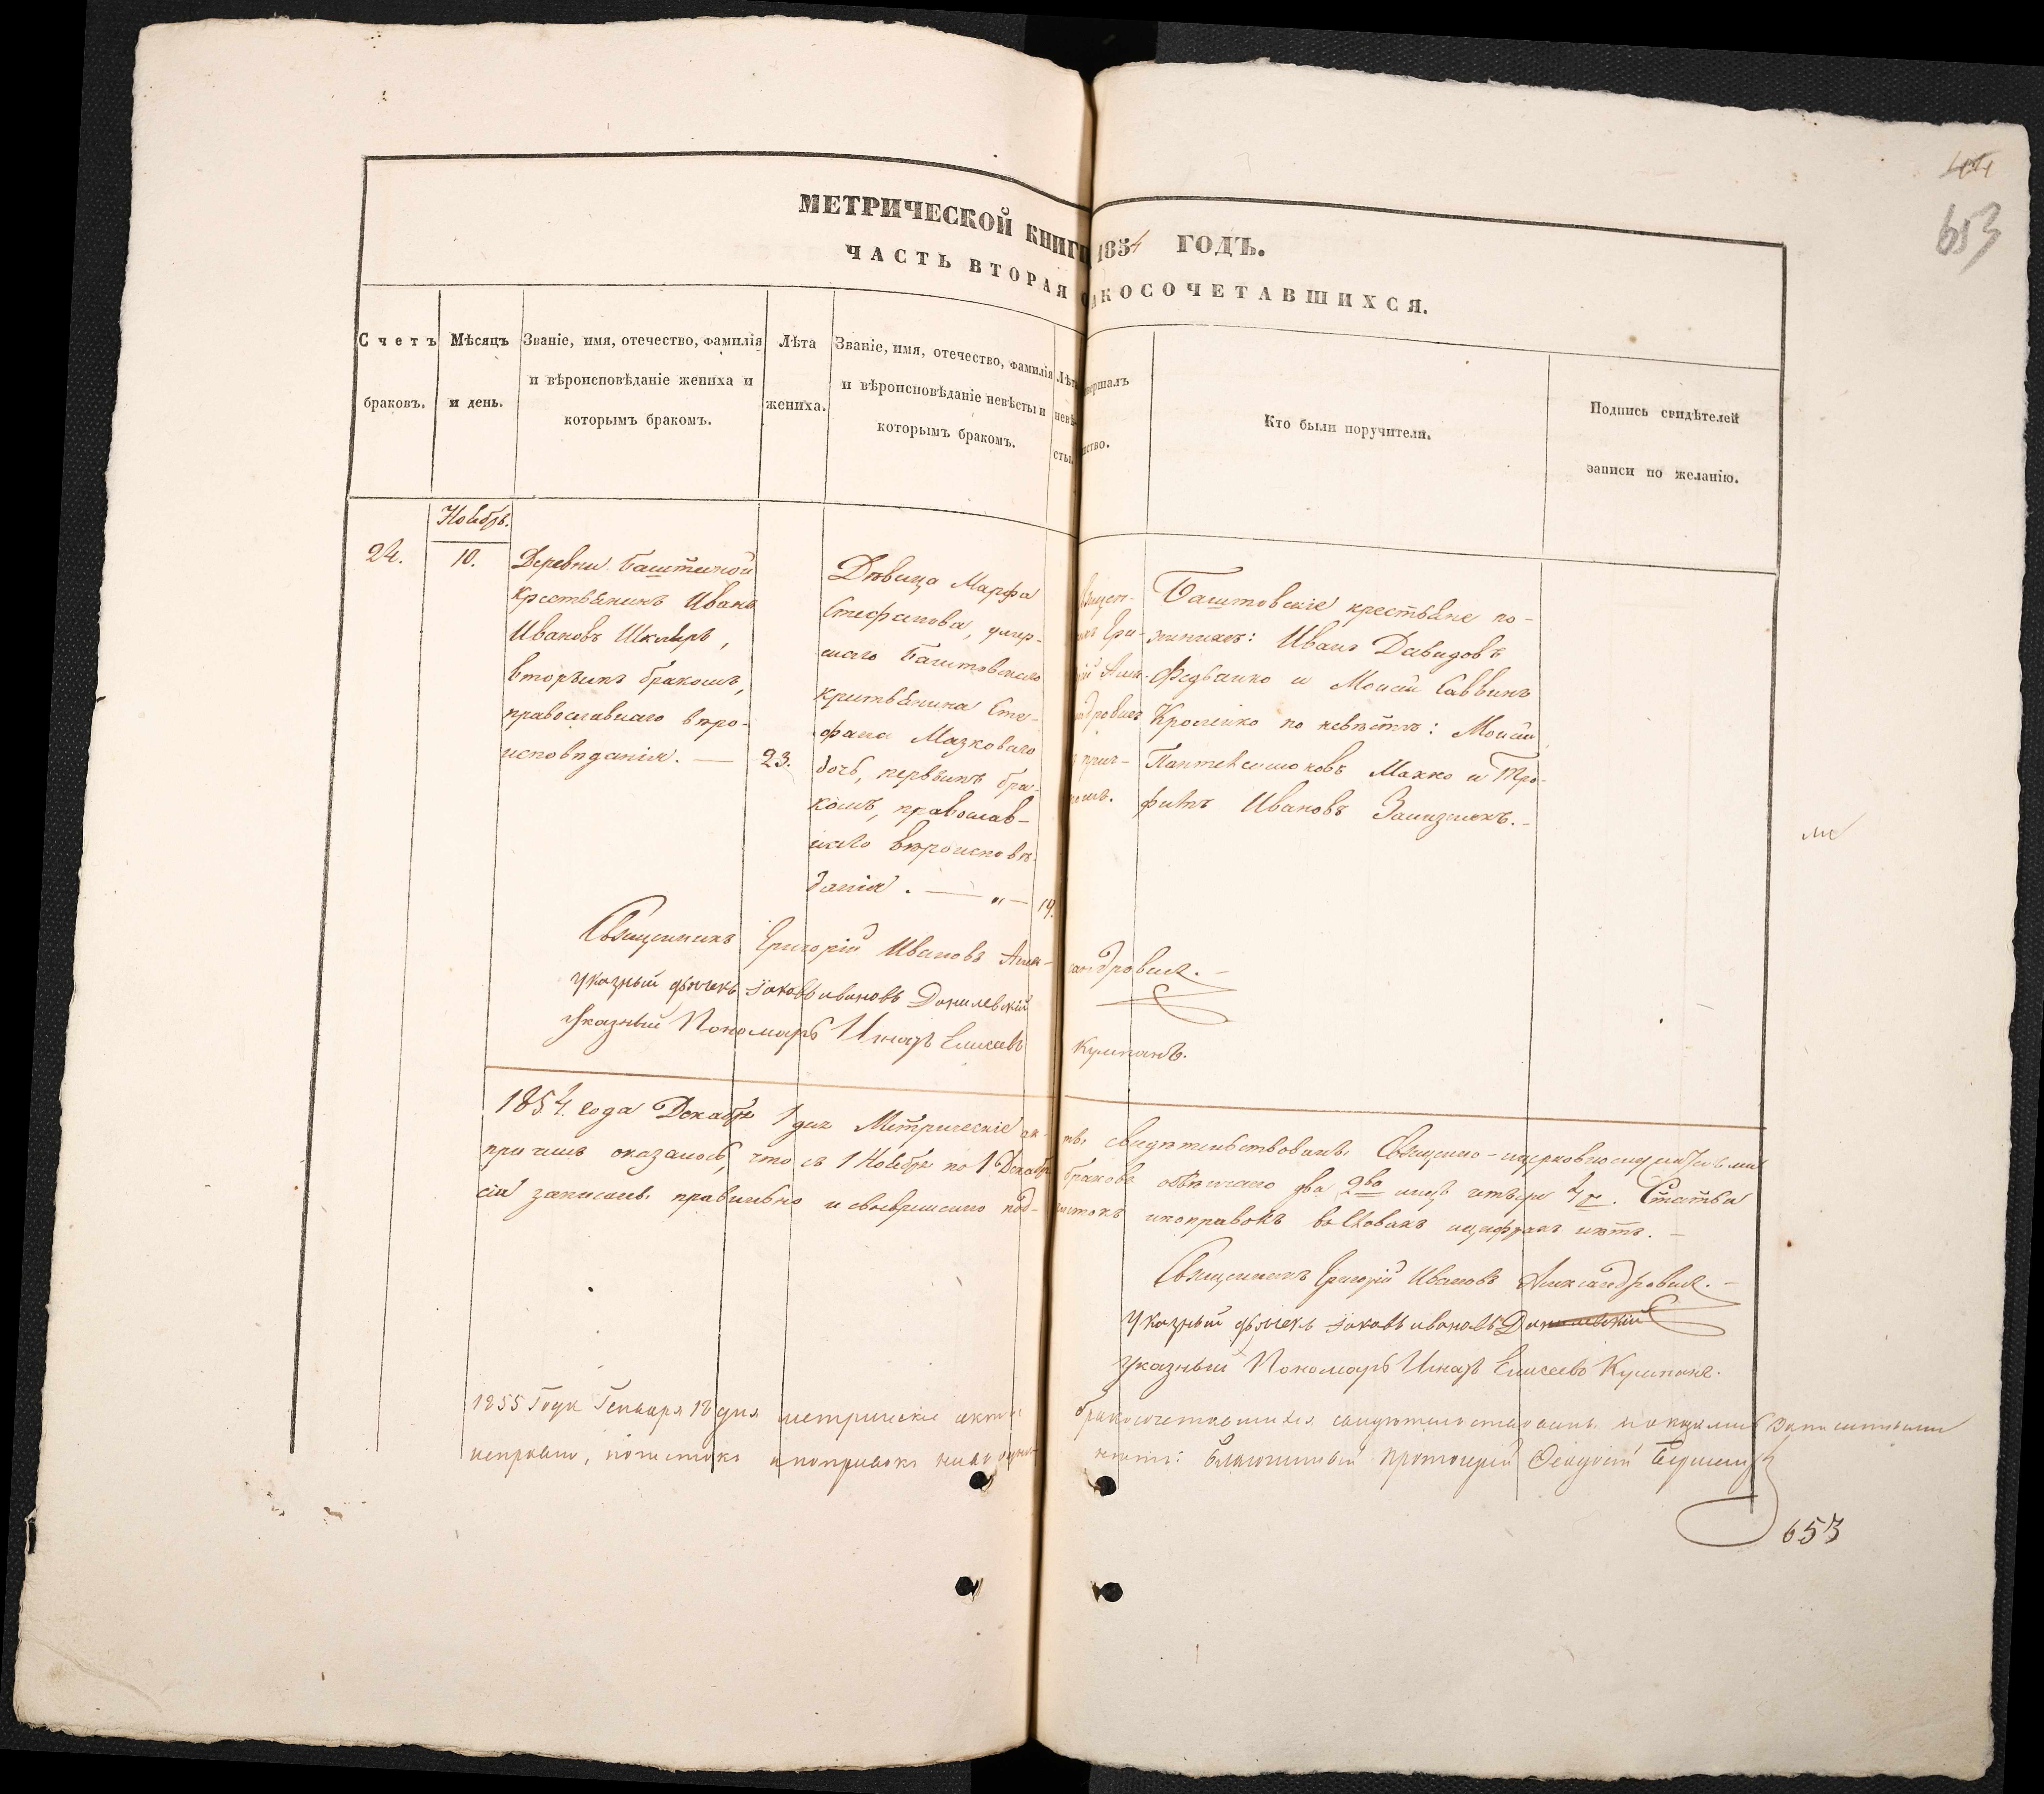 44
653
МЕТРИЧЕСКОЙ КНИГИ 1854 ГОДЪ.
ЧАСТЬ ВТОРАЯ АКОСОЧЕТАВШИХСЯ.
Счетъ
браковъ.
Мѣсяцъ
и день.
Званіе, имя, отечество, фамилія
и вѣроисповѣданіе жениха и
которымъ бракомъ.
Лѣта
жениха.
Званіе, имя, отечество, фамилія
и вѣроисповѣданіе невѣсты и
которымъ бракомъ.
Лѣта
невѣ-
сты.
вершалъ
нство.
Кто были поручители.
Подпись свидѣтелей
записи по желанію.
Ноябрь.
24.
10.
Деревни Баштиной
крестьянинъ Иванъ
Ивановъ Шкляръ,
вторымъ бракомъ,
православнаго вѣро-
исповѣданія. —
23.
Дѣвица Марфа
Стефанова, умер-
шаго Баштовскаго
крестьянина Сте-
фана Мазковаго
дочь, первымъ бра-
комъ, православ-
наго вѣроисповѣ-
данія. — „ —
19.
Священ-
Гри-
Алек-
андровичъ
прич-
Баштовскіе крестьяне по-
женихѣ: Иванъ Давидовъ
Федьянко и Моисей Саввинъ
по невѣстѣ: Моисей
Махно и Тро-
фимъ Ивановъ
Священникъ Григорій Ивановъ Алек-
сандровичъ. —
указный дьячекъ Іаковъ Ивановъ Данилевскій
Указный Пономарь Игнатъ Елисеевъ
Кулинанъ.
1854. года Декабря 1 дня Метрическіе ак-
ты свидѣтельствованы Священно-церковнослужителями
при чемъ оказалось, что съ 1 Ноября по 1 Декабря
браковъ два 2ва Статьи
сіи записаны правильно и своевременно под-
чистокъ и поправокъ въ словахъ и цифрахъ нѣтъ. —
Священникъ Григорій Ивановъ Александровичъ. —
Указный дьячекъ Іаковъ Ивановъ Данилевскій
Указный Пономарь Игнатъ Елисеевъ Кулинанъ.
1855 Года Генваря 18 дня метрическіе акты
бракосочетавшихся свидѣтельствованы
исправно, почистокъ и поправокъ
нѣтъ: Благочинный Протоіерей Ѳеодосій
653